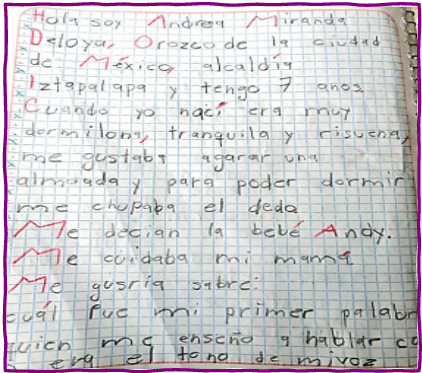 Hola soy Andrea Miranda
Deloya, Orozco de la ciudad
de México, alcaldía
Iztapalapa y tengo 7 anos.
Cuando yo nací era muy
dormilona, tranquila y risuena,
me gustaba agarar una
almuada y para poder dormir
me chupaba el dedo
Me decian la bebé Andy.
Me cuidaba mi mamá
Me gusría sabre:
cuál fue mi primer palabr
quien me enseño a hablar co
era el tono de mi voz